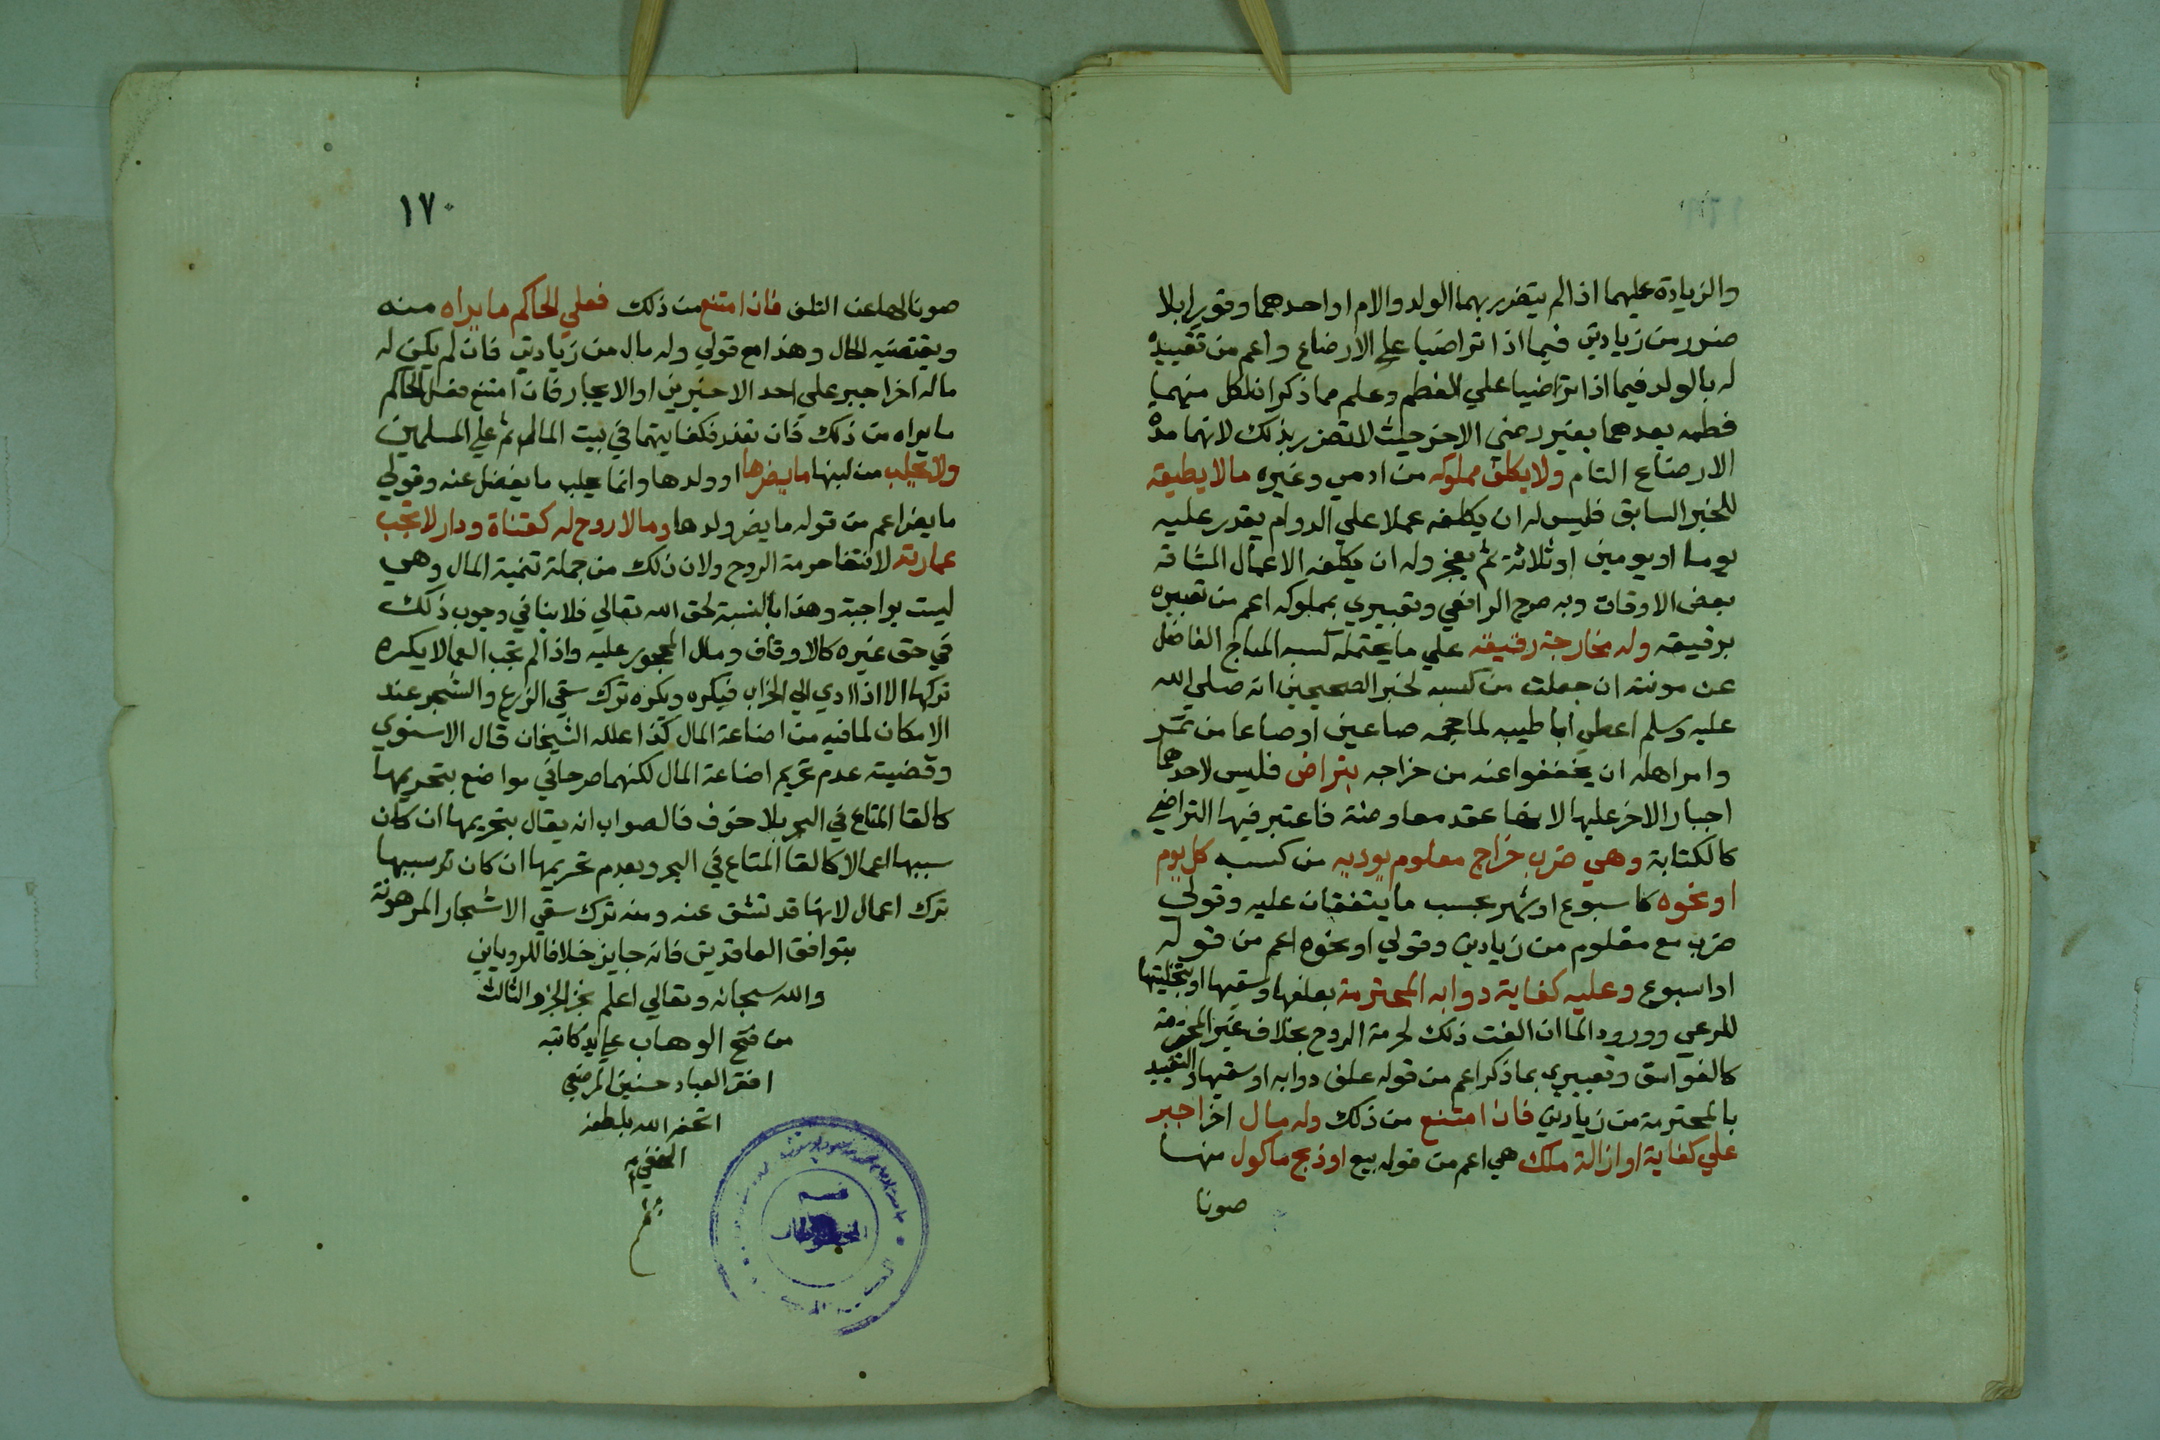 والزيادة عليهما اذا لم يتضرر بهما الولد والام او احدهما وقولي بلا
ضرر من زيادتي فيما اذا تراضيا علي الارضاع واعم من تقييده
له بالولد فيما اذا تراضيا علي الفطم وعلم مما ذكر ان لكل منهما
فطمه بعدهما بغير رضي الاخر حيث لا تضرر بذلك لانها مدة
الارضاع التام ولا يكلف مملوكه من ادمي وغيره ما لا يطيقه
للخبر السابق فليس له ان يكلفه عملا علي الدوام يقدر عليه
يوما او يومين او ثلاثة ثم يعجز وله ان يكلفه الاعمال الشاقة
بعض الاوقات وبه صرح الرافعي وتعبيري بمملوكه اعم من تعبيره
برقيقه وله مخارجة رقيقه علي ما يحتمله كسبه المباح الفاضل
عن مونته ان جعلت من كسبه لخبر الصحيحين انه صلي الله
عليه وسلم اعطي ابا طيبه لما حجمه صاعين او صاعا من تمر
وامر اهله ان يخففوا عنه من خراجه بتراض فليس لاحدهما
اجبار الاخر عليها لانها عقد معاوضة فاعتبر فيها التراضي
كالكتابة وهي ضرب خراج معلوم يوديه من كسبه كل يوم
او نحوه كاسبوع او شهر بحسب ما يتفقان عليه وقولي
ضرب مع معلوم من زيادتي وقولي او نحوه اعم من قوله
او اسبوع وعليه كفاية دوابه المحترمة بعلفها وسقيها او بتخليتها
للرعي وورود الما ان الفت ذلك لحرمة الروح بخلاف غير المحترمة
كالفواسق وتعبيري بما ذكر اعم من قوله علف دوابه او سقيها والتقييد
بالمحترمة من زيادتي فان امتنع من ذلك وله مال اخر اجبر
علي كفاية او ازالة ملك هي اعم من قوله بيع او ذبح ماكول منها
صونا
١٧٠
صونا لها عن التلف فان امتنع من ذلك فعلي الحاكم ما يراه منه
ويقتضيه الحال وهذا مع قولي وله مال من زيادتي فان لم يكن له
مال اخر اجبر علي احد الاخيرين او الايجار فان امتنع فعل الحاكم
ما يراه من ذلك فان تعذر فكفايتها في بيت المال ثم علي المسلمين
ولا يحلب من لبنها ما يضرها او ولدها وانما يحلب ما يفضل عنه وقولي
ما يضر اعم من قوله ما يضر ولدها وما لا روح له كقناة ودار لا تجب
عمارته لانتفا حرمة الروح ولان ذلك من جملة تنمية المال وهي
ليست بواجبة وهذا بالنسبة لحق الله تعالي فلا ينافي وجوب ذلك
في حق غيره كالاوقاف ومال المحجور عليه واذا لم تجب العمالا يكره
تركها الا اذا ادي الي الخراب فيكره ويكره ترك سقي الزرع والشجر عند
الامكان لما فيه من اضاعة المال كذا علله الشيخان قال الاسنوي
وقضيته عدم تحريم اضاعة المال لكنهما صرحا في مواضع بتحريمها
كالقا المتاع في البحر بلا خوف فالصواب ان يقال بتحريمها ان كان
سببها اعمالا كالقا المتاع في البحر وبعدم تحريمها ان كان سببها
ترك اعمال لانها قد تشق عنه ومنه ترك سقي الاشجار المرهونة
بتوافق العاقدين فانه جايز خلافا للروياني
والله سبحانه وتعالي اعلم نجز الجزو الثالث
من فتح الوهاب علي يد كاتبه
افقر العباد حسنين المرصفي
اتحفه الله بلطفه
الخفي
تم
قسم
المخطوطات